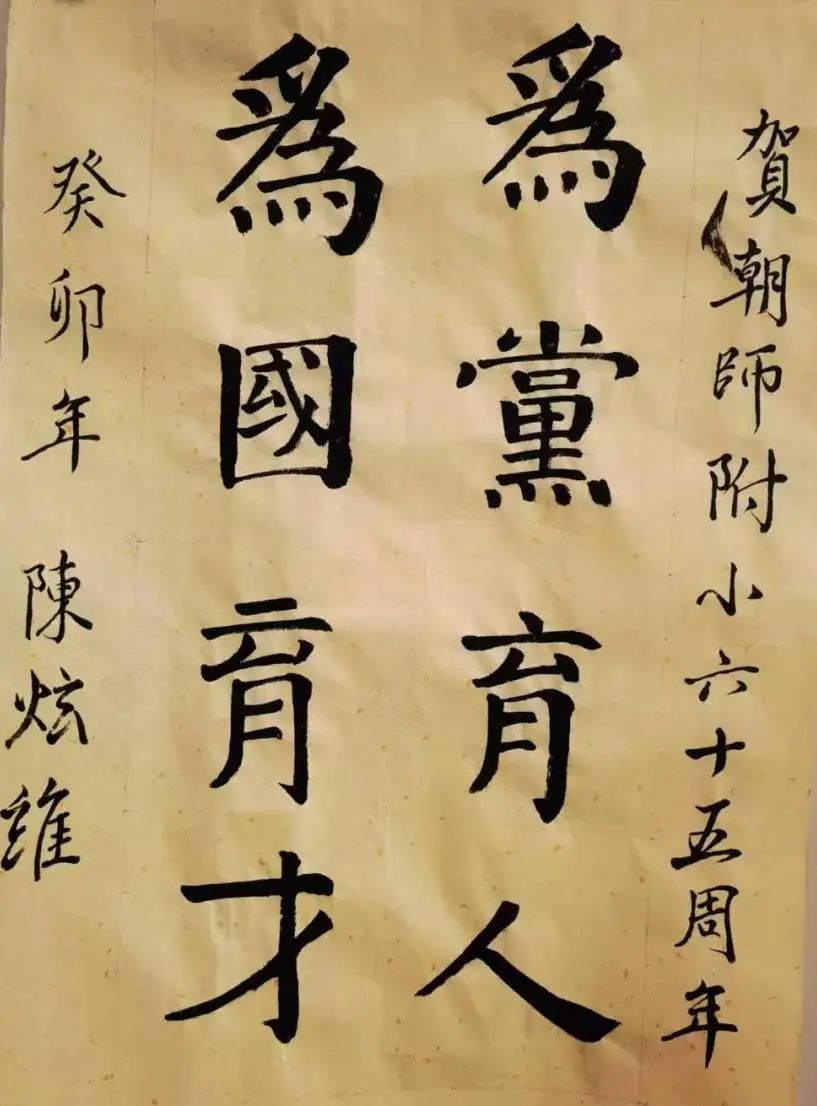 賀朝師附小六十五周年
爲黨育人
爲國育才
癸卯年 陳炫維